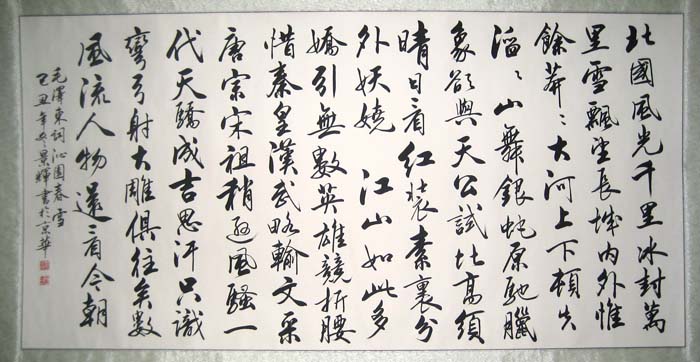 北國風光千里冰封萬
里雪飄望長城內外惟
餘莽〻大河上下頓失
滔〻山舞銀蛇原馳臘
象欲與天公試比高須
晴日看紅裝素裹分
外妖嬈江山如此多
嬌引無數英雄競折腰
惜秦皇漢武略輸文采
唐宗宋祖稍遜風騷一
代天驕成吉思汗只識
彎弓射大雕俱往矣數
風流人物還看今朝
毛澤東詞沁園春雪
乙丑年冬景輝書於京華